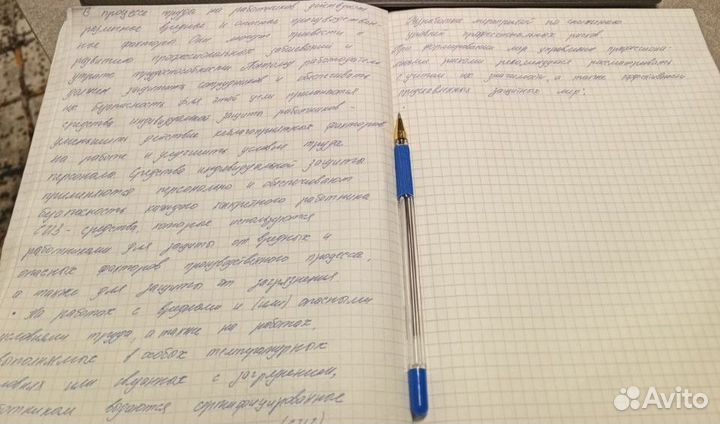 В процессе труда на работников действуют
различные вредные и опасные производствен-
ные факторы. Они могут привести к
развитию профессиональных заболеваний и
утрате трудоспособности. Поэтому работодатель
должен защитить сотрудников и обеспечить
их безопасность. Для этой цели применяются
средства индивидуальной защиты работников -
уменьшить действие неблагоприятных факторов
на работе и улучшить условия труда
персонала. Средства индивидуальной защиты
применяются персонально и обеспечивают
безопасность каждого конкретного работника
СИЗ - средства, которые используются
работниками для защиты от вредных и
опасных факторов производственного процесса,
а также для защиты от загрязнения
• На работах с вредными и (или) опасными
условиями труда, а также на работах,
выполняемых в особых температурных
или связанных с загрязнением,
работникам выдаются сертифицированные
Разработка мероприятий по снижению
уровней профессиональных рисков
При формировании мер управления професси-
ональными рисками рекомендуется рассматривать
с учетом их значимости, а также эффективности
предложенных защитных мер:
Avito